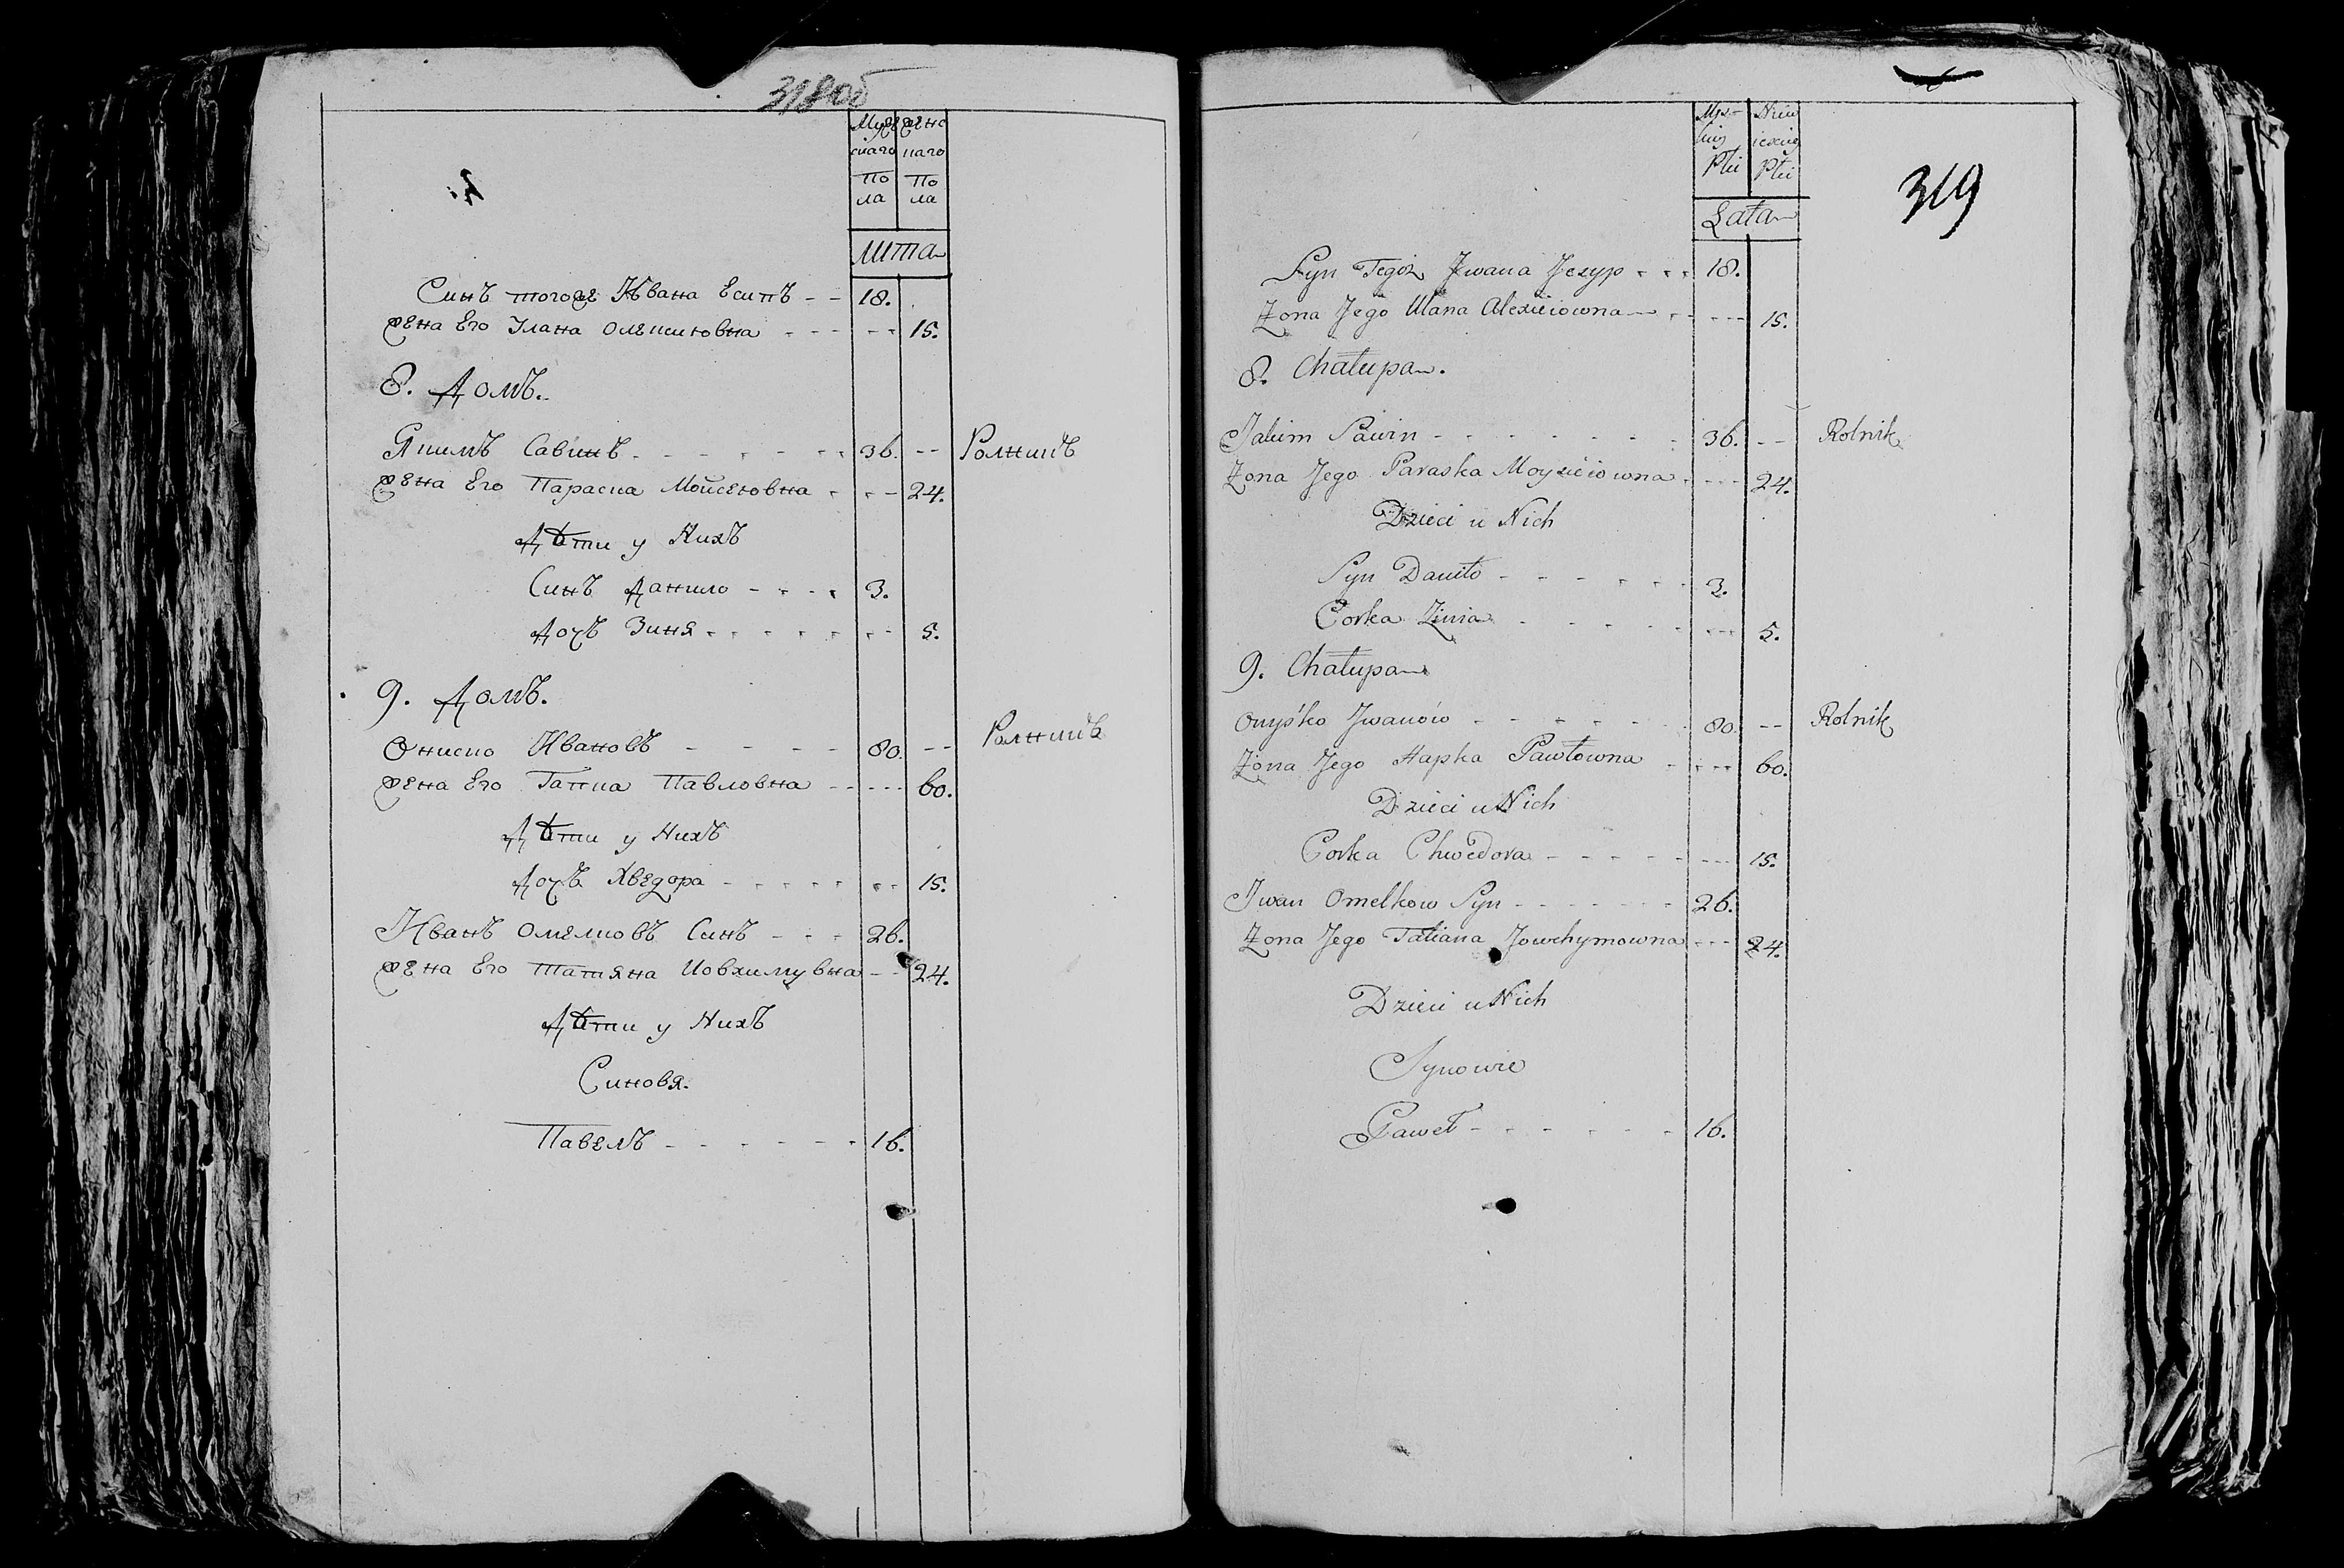 318об
Мужескаго Пола
Женскаго Пола
Лѣта
Синъ тогоже Ивана Есипъ - - 18.
Жена Его Улана Олексиювна - - - - - 15.
8. Домъ.
Якимъ Савинъ - - - - - - 36. -- Ролникъ
Жена Его Параска Мойсеювна - - - 24.
Дѣти у Нихъ
Синъ Данило - - - - 3.
Дочъ Зиня - - - - - - - 5.
9. Домъ.
Ониско Ивановъ - - - - - 80. -- Ролникъ
Жена Его Гапка Павловна - - - - - 60.
Дѣти у Нихъ
Дочъ Хведора - - - - - - - 15.
Иванъ Омелковъ Синъ - - - 26.
Жена Его Татяна Иовхимувна - - 24.
Дѣти у Нихъ
Синовя.
Павелъ - - - - - - 16.
319
Płci
Płci
Lata
Syn Tegoż Jwana Jezyp - - - 18.
Żona Jego Ulana Alexiejowna - - - - - 15.
8. Chałupa.
Jakim Sawin - - - - - - - 36. -- Rolnik
Żona Jego Paraska Moyzeiowna - - - - 24.
Dzieci u Nich
Syn Daniło - - - - - - 3.
Corka Zinia - - - - - - - - 5.
9. Chałupa
Onyśko Jwanów - - - - - - 80. -- Rolnik
Żona Jego Hapka Pawłowna - - - - 60.
Dzieci u Nich
Corka Chwedora - - - - - - - - 15.
Jwan Omelkow Syn - - - - - - - 26.
Żona Jego Tatiana Jowchymowna - - - 24.
Dzieci u Nich
Synowie
Paweł - - - - - - 16.